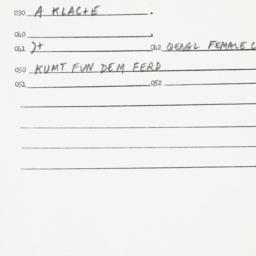 030 A KLACHE .
040 .
041 )+ 042 QENGL FEMALE C
050 KUMT FUN DEM FERD
051 052